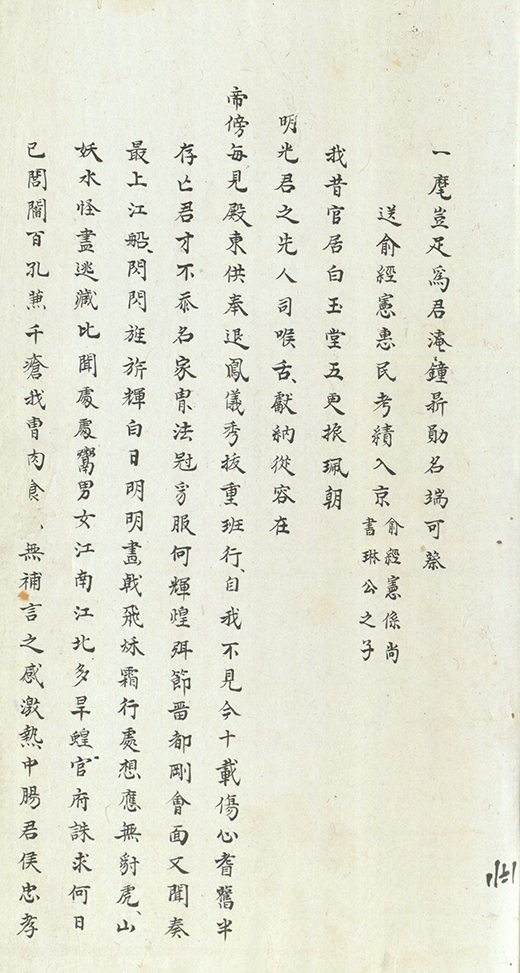 一麾豈足爲君淹鐘鼎勛名端可蔡
送俞經憲惠民考績入京俞經憲係尚
書琳公之子
我昔官居白玉堂五更振珮朝
明光君之先人司喉舌獻納從容在
帝傍每見殿東供奉退鳳儀秀拔重班行自我不見今十載傷心耆舊半
存亡君才不忝名家冑法冠豸服何輝煌弭節晉都剛會面又聞奏
最上江船閃閃旌旂輝白日明明畫戟飛秌霜行處想應無豺虎山
妖水怪盡逃藏比聞處處鬻男女江南江北多旱蝗官府誅求何日
已閭閻百孔兼千瘡我曹肉食、無補言之感激熱中腸君侯忠孝